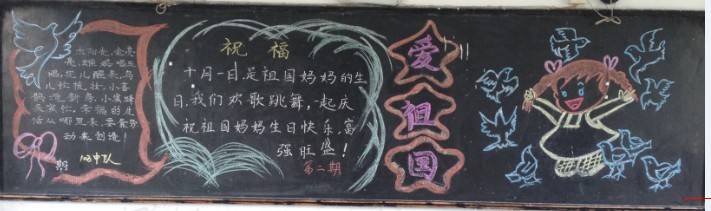 太阳光,金亮
亮,雄鸡唱三
唱,花儿醒来,鸟
儿忙梳妆,小喜
鹊,造新房,小蜜蜂
采蜜忙,幸福的生
活从哪里来,要靠劳
动来创造!
中队
祝福
十月一日是祖国妈妈的生
日,我们欢歌跳舞,一起庆
祝祖国妈妈生日快乐,富
强旺盛!
第二期
爱
祖
国